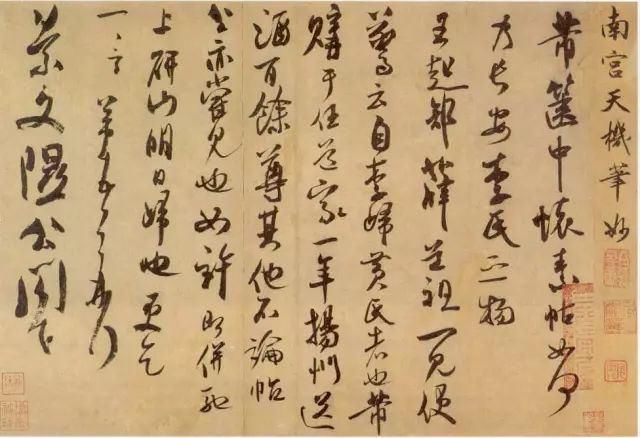 南宫天機筆妙
芾篋中懷素帖如何
乃長安李氏之物
王起部薛道祖一見便
驚云自李歸黄氏者也芾
購于任道家一年揚州送
酒百餘尊其他不論帖
公亦嘗見也如許即併馳
上研山明日歸也更乞
一言 芾頓首再拜
景文隰公閣下